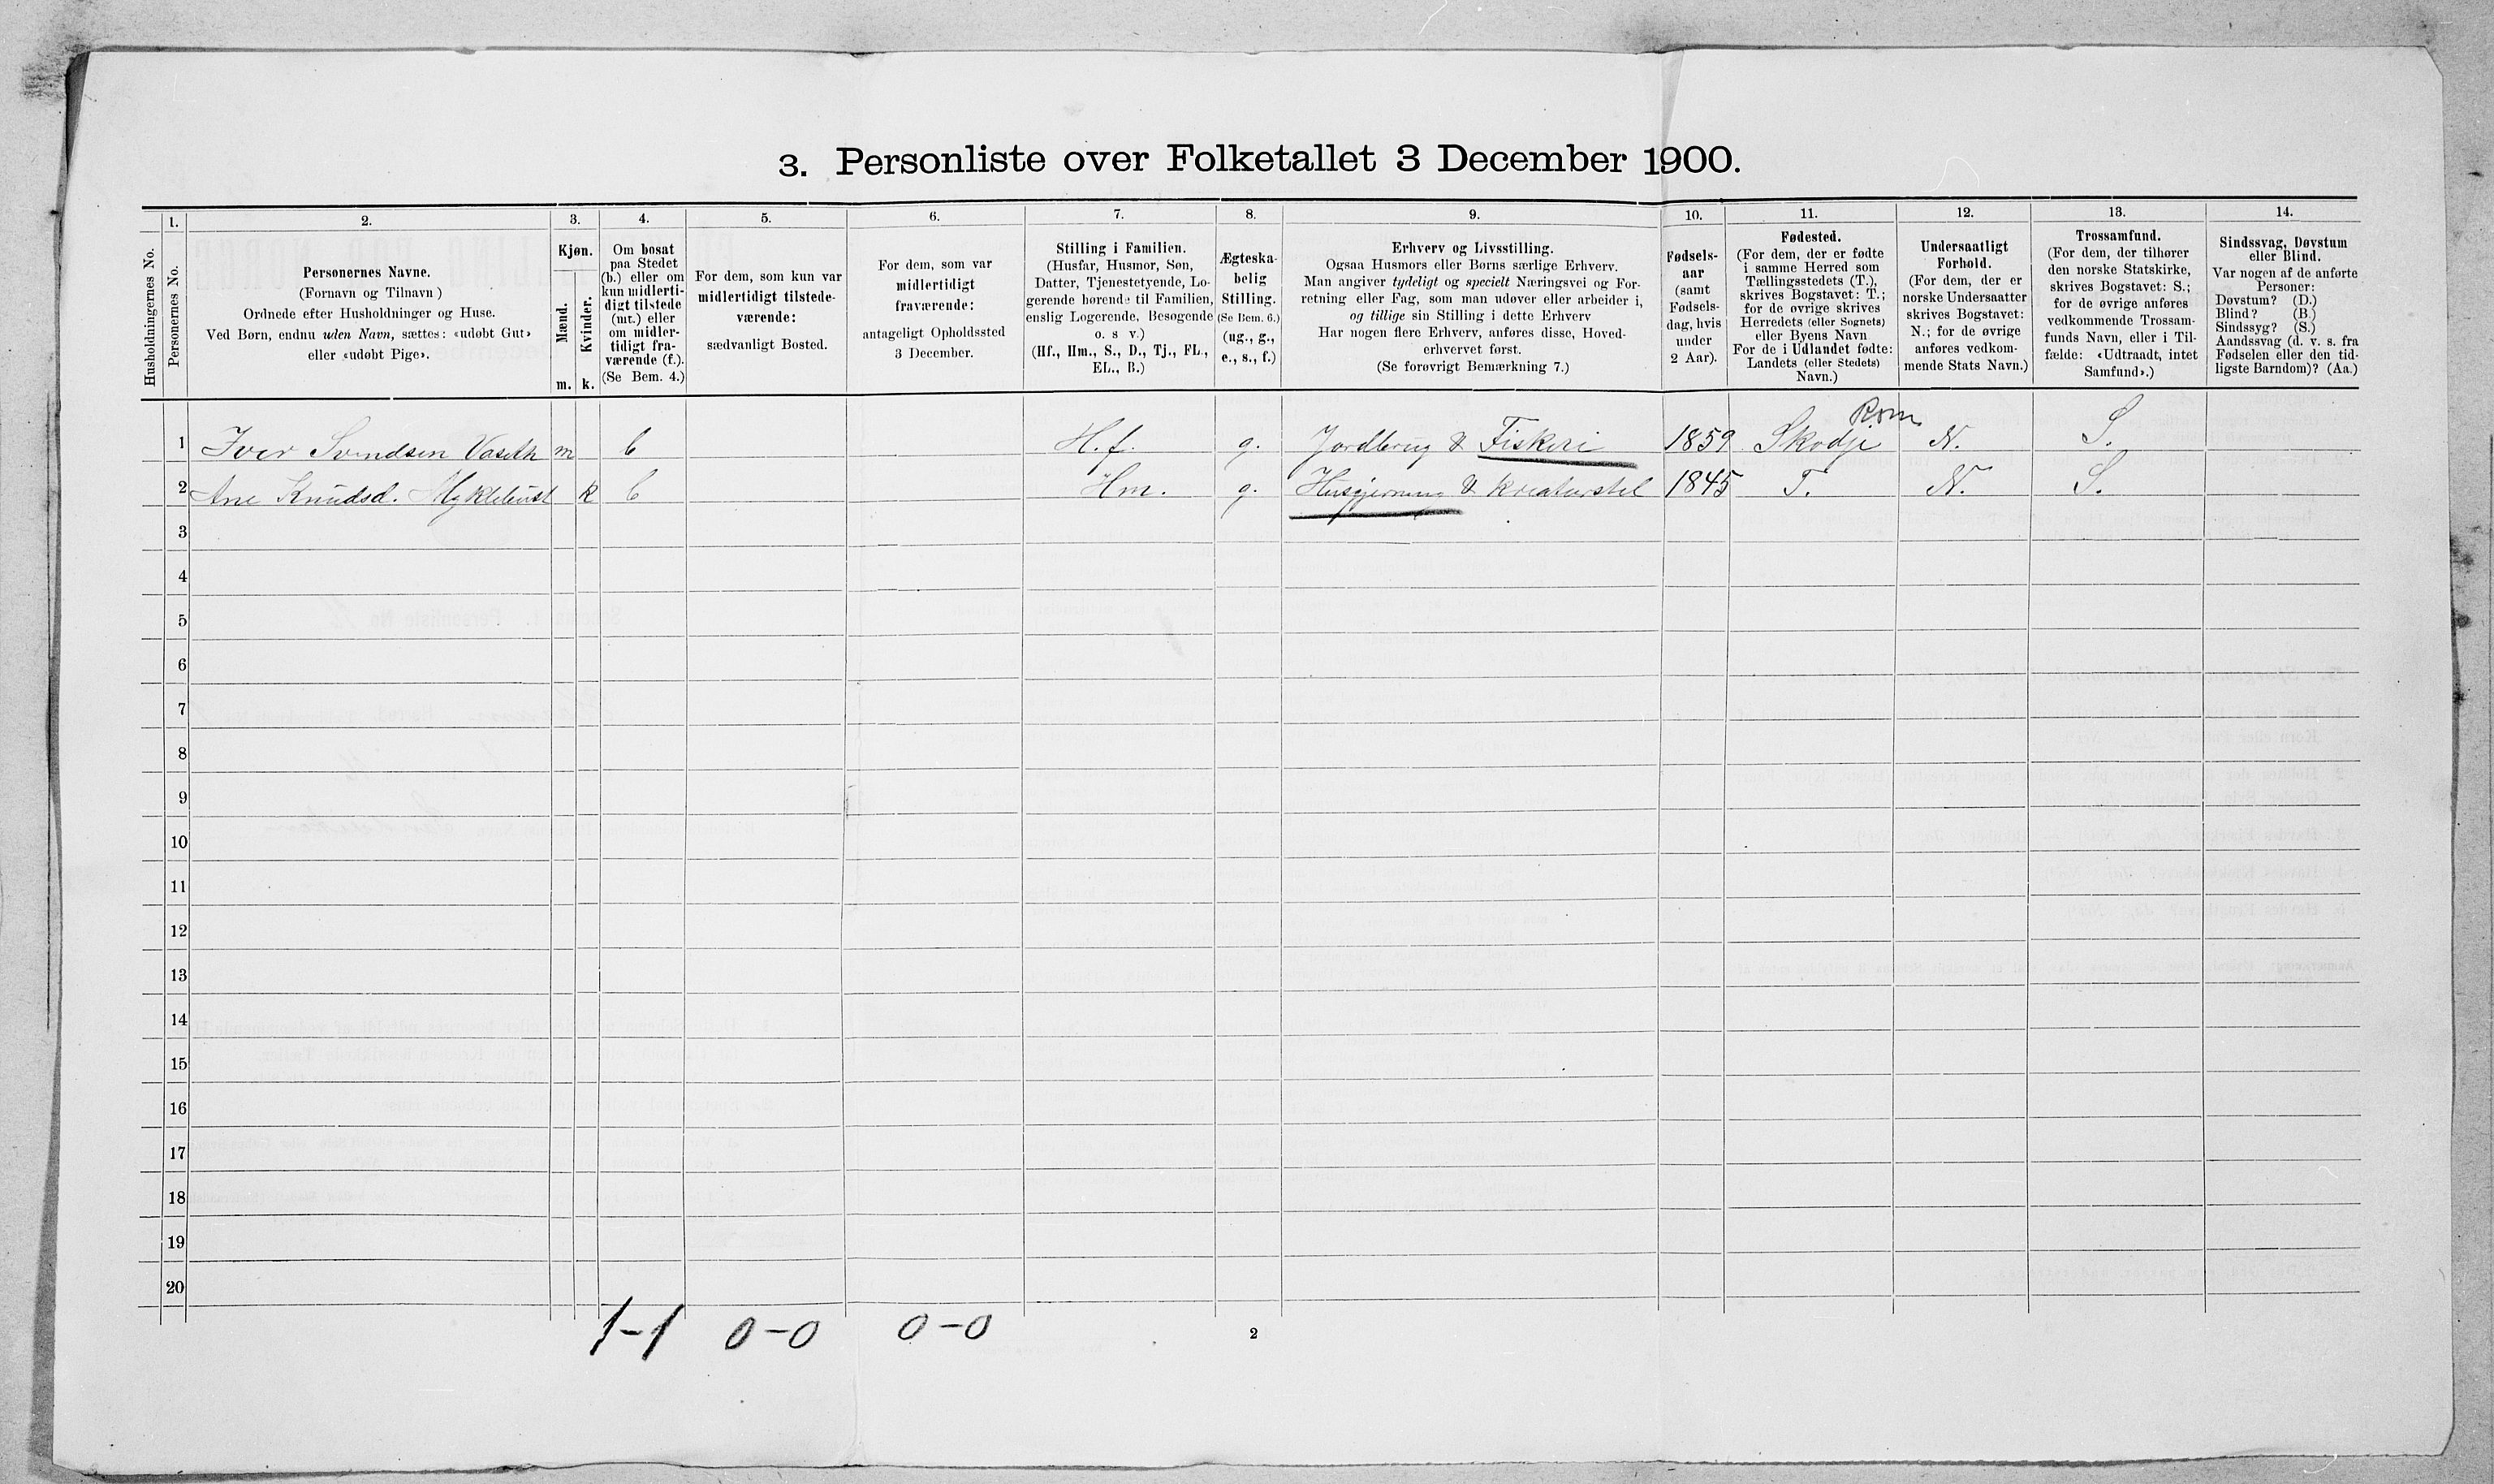 3. Personliste over Folketallet 3 December 1900.
1. 2. 3. 4. 5. 6. 7. 8. 9. 10. 11. 12. 13. 14.
Husholdningernes No.
Personernes No.
Personernes Navne.
(Fornavn og Tilnavn)
Ordnede efter Husholdninger og Huse.
Ved Børn, endnu uden Navn, sættes: «udøbt Gut»
eller «udøbt Pige».
Kjøn.
Mænd.
Kvinder.
m. k.
Om bosat
paa Stedet
(b.) eller om
kun midlerti-
digt tilstede
(mt.) eller
om midler-
tidigt fra-
værende (f.).
(Se Bem. 4.)
For dem, som kun var
midlertidigt tilstede-
værende:
sædvanligt Bosted.
For dem, som var
midlertidigt
fraværende:
antageligt Opholdssted
3 December.
Stilling i Familien.
(Husfar, Husmor, Søn,
Datter, Tjenestetyende, Lo-
gerende hørende til Familien,
enslig Logerende, Besøgende
o. s v.)
(Hf., Hm., S., D., Tj., FL.,
EL., B.)
Ægteska-
belig
Stilling.
(Se Bem. 6.)
(ug., g.,
e., s., f.)
Erhverv og Livsstilling.
Ogsaa Husmors eller Børns særlige Erhverv.
Man angiver tydeligt og specielt Næringsvei og For-
retning eller Fag, som man udøver eller arbeider i,
og tillige sin Stilling i dette Erhverv
Har nogen flere Erhverv, anføres disse, Hoved-
erhvervet først.
(Se forøvrigt Bemærkning 7.)
Fødsels-
aar
(samt
Fødsels-
dag, hvis
under
2 Aar).
Fødested.
(For dem, der er fødte
i samme Herred som
Tællingsstedets (T.),
skrives Bogstavet: T.;
for de øvrige skrives
Herredets (eller Sognets)
eller Byens Navn
For de i Udlandet fødte:
Landets (eller Stedets)
Navn.)
Undersaatligt
Forhold.
(For dem, der er
norske Undersaatter
skrives Bogstavet:
N.; for de øvrige
anføres vedkom-
mende Stats Navn.)
Trossamfund.
(For dem, der tilhører
den norske Statskirke,
skrives Bogstavet: S.;
for de øvrige anføres
vedkommende Trossam-
funds Navn, eller i Til-
fælde: «Udtraadt, intet
Samfund».)
Sindssvag, Døvstum
eller Blind.
Var nogen af de anførte
Personer:
Døvstum? (D.)
Blind? (B.)
Sindssyg? (S.)
Aandssvag (d. v. s. fra
Fødselen eller den tid-
ligste Barndom)? (Aa.)
Rom
1 Iver Svendsen Vaseth m b H.f. g. Jordbrug & Fiskeri 1859 Skodje N. S.
2 Ane Knudsd. Myklebust k b Hm. g. Husgjerning & Kreaturstel 1845 T. N. S.
3
4
5
6
7
8
9
10
11
12
13
14
15
16
17
18
19
20
1-1 0-0 0-0
2